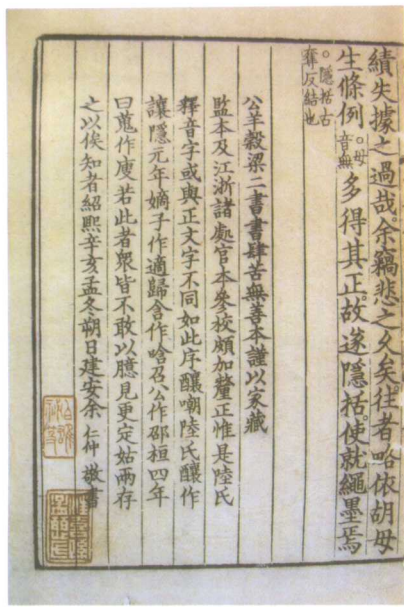 績失據之過哉。余竊悲之久矣。往者略依胡毋
生條例。毋音無多得其正。故遂隱括。使就繩墨焉
。隱括古
弃反結也
公羊穀梁二書書肆苦無善本謹以家藏
監本及江浙諸處官本參校頗加釐正惟是陸氏
釋音字或與正文字不同如此序釀嘲陸氏釀作
讓隱元年嫡子作適歸含作唅召公作邵桓四年
曰蒐作廋若此者衆皆不敢以臆見更定姑兩存
之以俟知者紹熙辛亥孟冬朔日建安余仁仲敬書